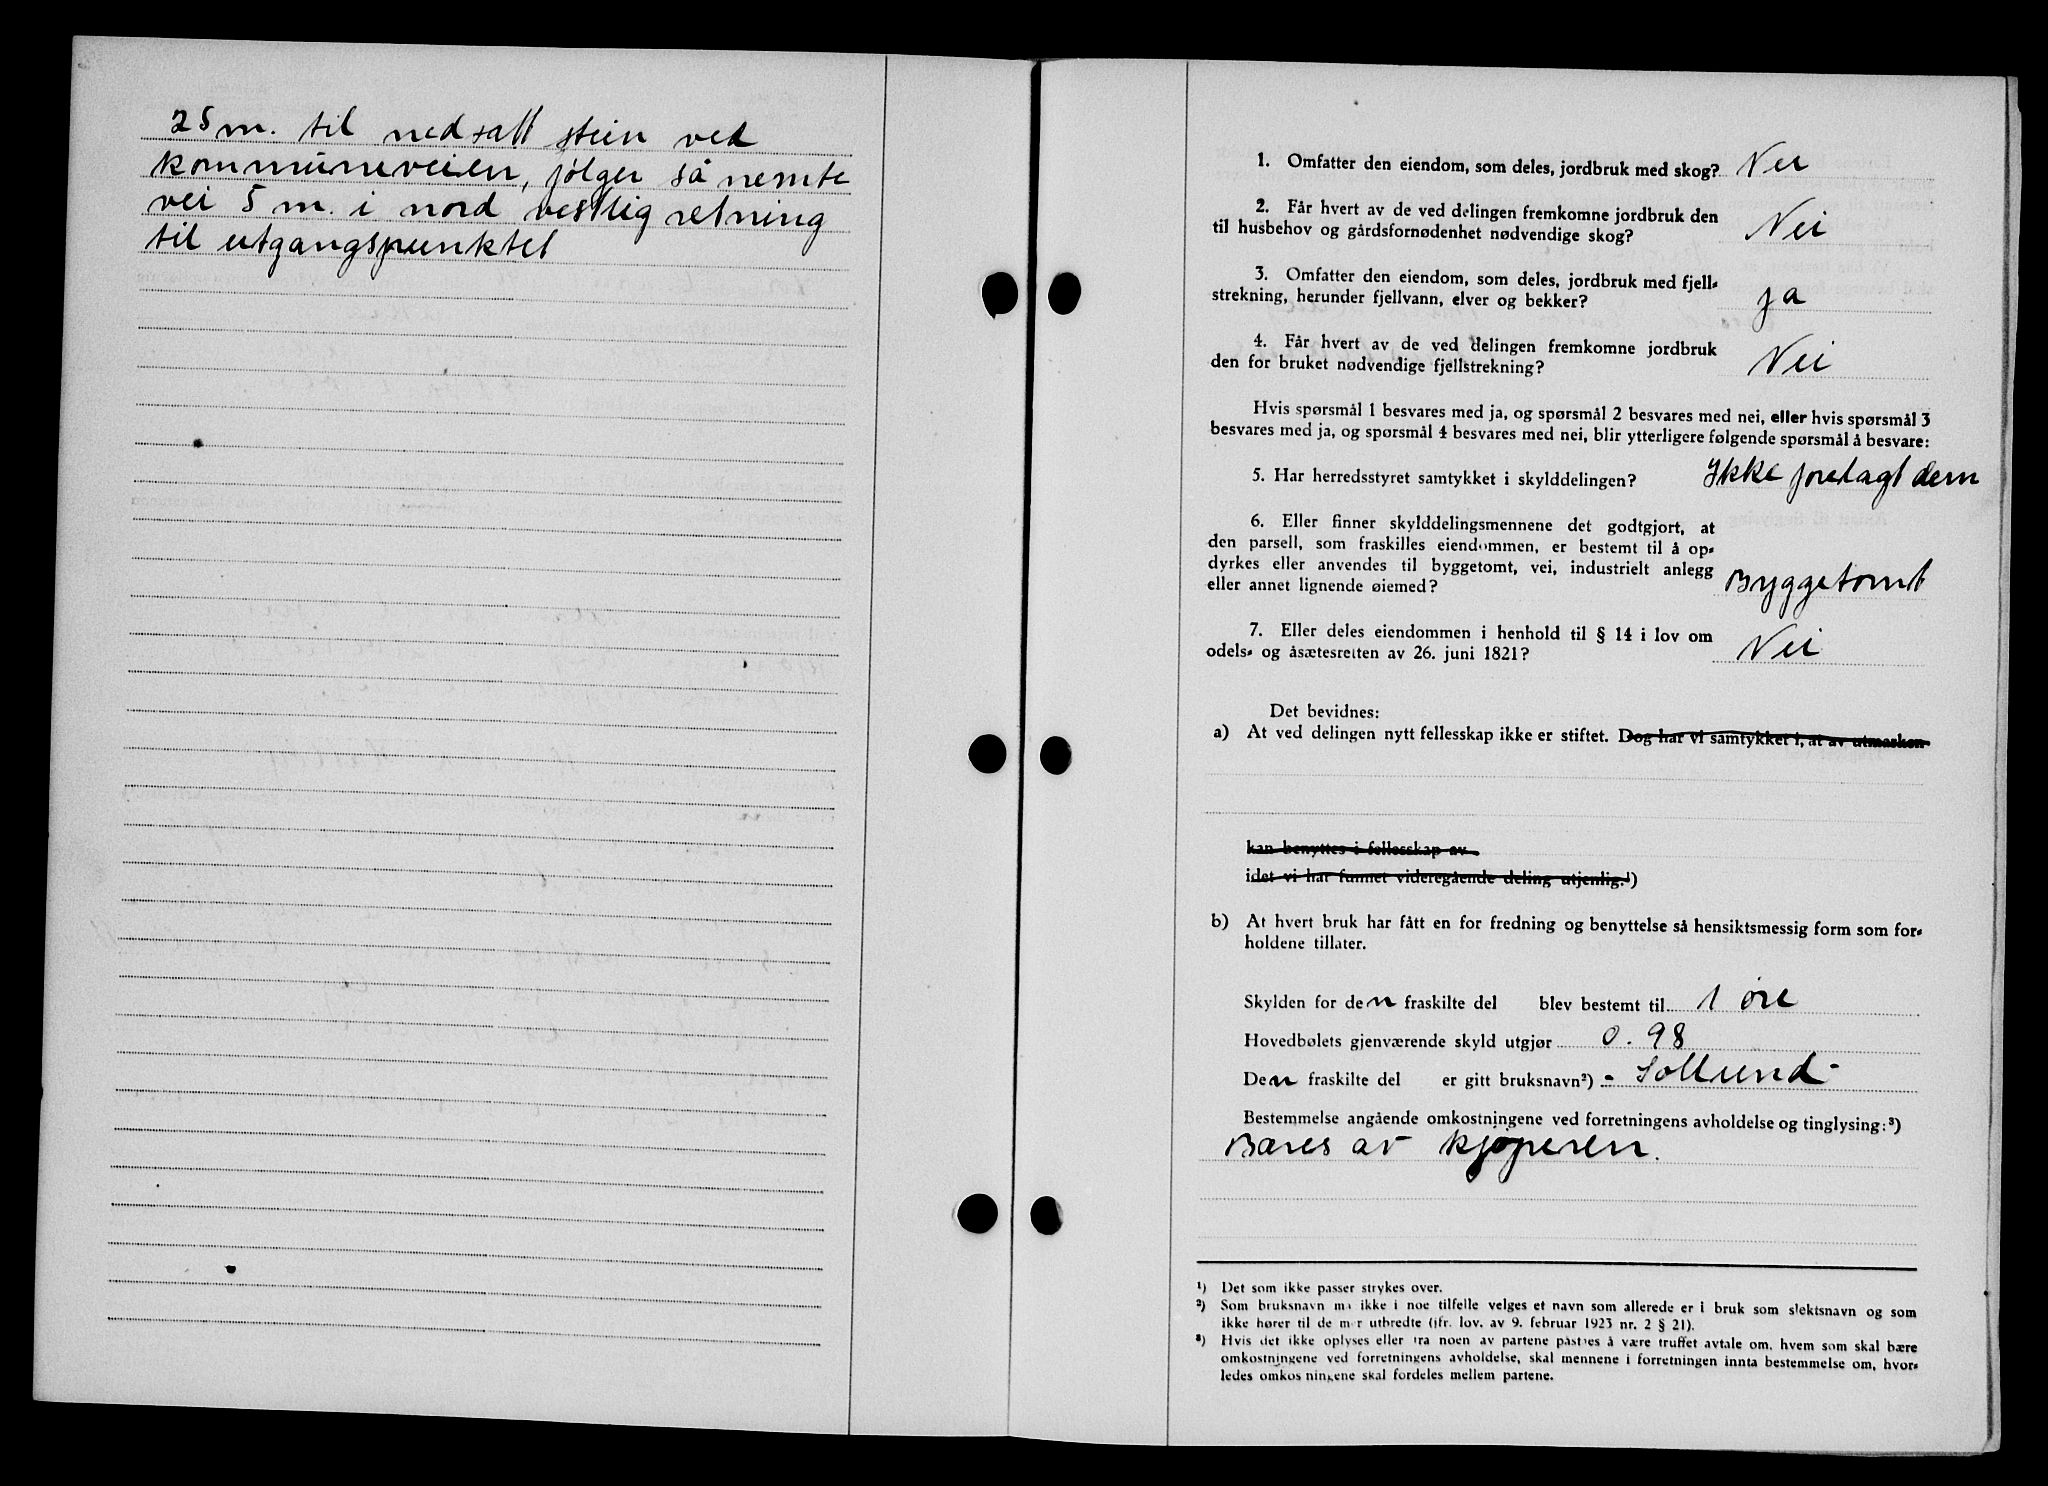 25 m. til nedsatt stein ved
kommuneveien, følger så nemte
vei 5 m. i nord vestlig retning
til utgangspunktet
1. Omfatter den eiendom, som deles, jordbruk med skog? Nei
2. Får hvert av de ved delingen fremkomne jordbruk den
til husbehov og gårdsfornødenhet nødvendige skog? Nei
3. Omfatter den eiendom, som deles, jordbruk med fjell-
strekning, herunder fjellvann, elver og bekker? ja
4. Får hvert av de ved delingen fremkomne jordbruk
den for bruket nødvendige fjellstrekning? Nei
Hvis spørsmål 1 besvares med ja, og spørsmål 2 besvares med nei, eller hvis spørsmål 3
besvares med ja, og spørsmål 4 besvares med nei, blir ytterligere følgende spørsmål å besvare:
5. Har herredsstyret samtykket i skylddelingen? Ikke forelagt dem
6. Eller finner skylddelingsmennene det godtgjort, at
den parsell, som fraskilles eiendommen, er bestemt til å op-
dyrkes eller anvendes til byggetomt, vei, industrielt anlegg
eller annet lignende øiemed? Byggetomt
7. Eller deles eiendommen i henhold til § 14 i lov om
odels- og åsætesretten av 26. juni 1821? Nei
Det bevidnes:
a) At ved delingen nytt fellesskap ikke er stiftet. Dog har vi samtykket i, at av utmarken
kan benyttes i fellesskap av
idet vi har funnet videregående deling utjenlig.¹)
b) At hvert bruk har fått en for fredning og benyttelse så hensiktsmessig form som for-
holdene tillater.
Skylden for den fraskilte del blev bestemt til 1 øre
Hovedbølets gjenværende skyld utgjør 0.98
Den fraskilte del er gitt bruksnavn²) - Sollund -
Bestemmelse angående omkostningene ved forretningens avholdelse og tinglysing:³)
Bæres av kjøperen.
¹) Det som ikke passer strykes over.
²) Som bruksnavn må ikke i noe tilfelle velges et navn som allerede er i bruk som slektsnavn og som
ikke hører til de mer utbredte (jfr. lov. av 9. februar 1923 nr. 2 § 21).
³) Hvis det ikke oplyses eller fra noen av partene påstås å være truffet avtale om, hvem som skal bære
omkostningene ved forretningens avholdelse, skal mennene i forretningen innta bestemmelse om, hvor-
ledes omkostningene skal fordeles mellem partene.